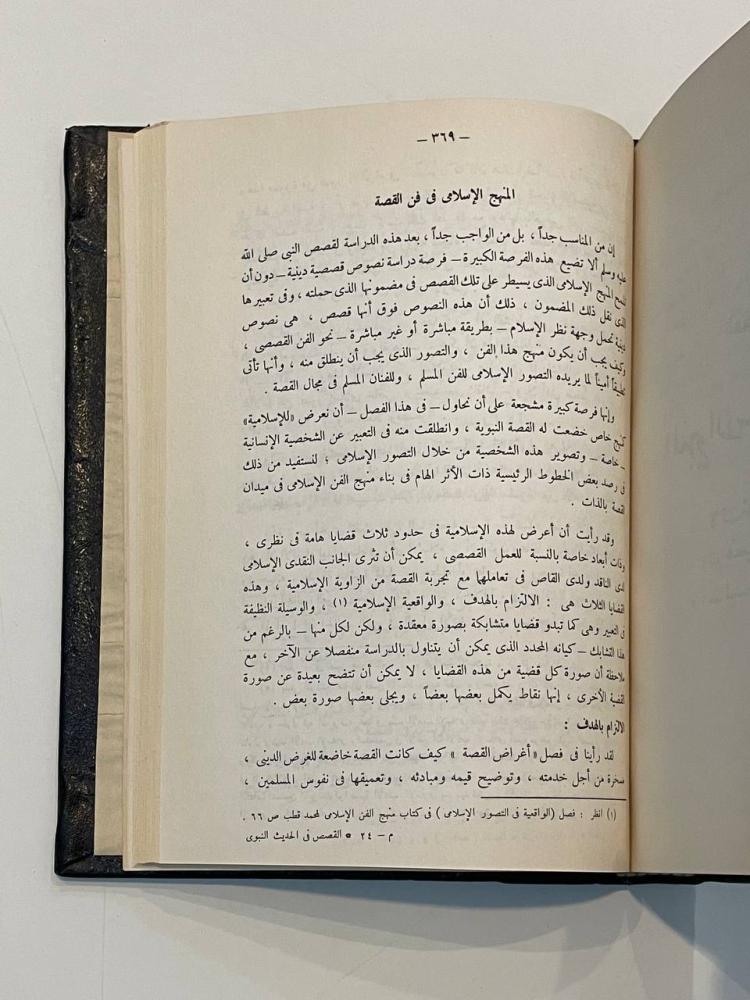 – ٣٦٩ –
المنهج الإسلامى فى فن القصة
إن من المناسب جداً ، بل من الواجب جداً ، بعد هذه الدراسة لقصص النبى صلى الله
عليه وسلم ألا نضيع هذه الفرصة الكبيرة – فرصة دراسة نصوص قصصية دينية – دون أن
المنهج الإسلامى الذى يسيطر على تلك القصص فى مضمونها الذى حملته ، وفى تعبيرها
الذى نقل ذلك المضمون ، ذلك أن هذه النصوص فوق أنها قصص ، هى نصوص
دينية تحمل وجهة نظر الإسلام – بطريقة مباشرة أو غير مباشرة – نحو الفن القصصى ،
وكيف يجب أن يكون منهج هذا الفن ، والتصور الذى يجب أن ينطلق منه ، وأنها تأتى
تطبيقاً أميناً لما يريده التصور الإسلامى للفن المسلم ، وللفنان المسلم فى مجال القصة .
وإنها فرصة كبيرة مشجعة على أن نحاول – فى هذا الفصل – أن نعرض «للإسلامية»
كمنهج خاص خضعت له القصة النبوية ، وانطلقت منه فى التعبير عن الشخصية الإنسانية
– خاصة – وتصوير هذه الشخصية من خلال التصور الإسلامى ؛ لنستفيد من ذلك
فى رصد بعض الخطوط الرئيسية ذات الأثر الهام فى بناء منهج الفن الإسلامى فى ميدان
القصة بالذات .
وقد رأيت أن أعرض لهذه الإسلامية فى حدود ثلاث قضايا هامة فى نظرى ،
وذات أبعاد خاصة بالنسبة للعمل القصصى ، يمكن أن تثرى الجانب النقدى الإسلامى
لدى الناقد ولدى القاص فى تعاملها مع تجربة القصة من الزاوية الإسلامية ، وهذه
القضايا الثلاث هى : الالتزام بالهدف ، والواقعية الإسلامية (١) ، والوسيلة النظيفة
فى التعبير وهى كما تبدو قضايا متشابكة بصورة معقدة ، ولكن لكل منها – بالرغم من
هذا التشابك – كيانه المحدد الذى يمكن أن يتناول بالدراسة منفصلا عن الآخر ، مع
ملاحظة أن صورة كل قضية من هذه القضايا ، لا يمكن أن تتضح بعيدة عن صورة
القضية الأخرى ، إنها نقاط يكمل بعضها بعضاً ، ويجلى بعضها صورة بعض .
الالتزام بالهدف :
لقد رأينا فى فصل «أغراض القصة» كيف كانت القصة خاضعة للغرض الدينى ،
مسخرة من أجل خدمته ، وتوضيح قيمه ومبادئه ، وتعميقها فى نفوس المسلمين ،
(١) انظر : فصل (الواقعية فى التصور الإسلامى) فى كتاب منهج الفن الإسلامى لمحمد قطب ص ٦٦ .
م – ٢٤ * القصص فى الحديث النبوى